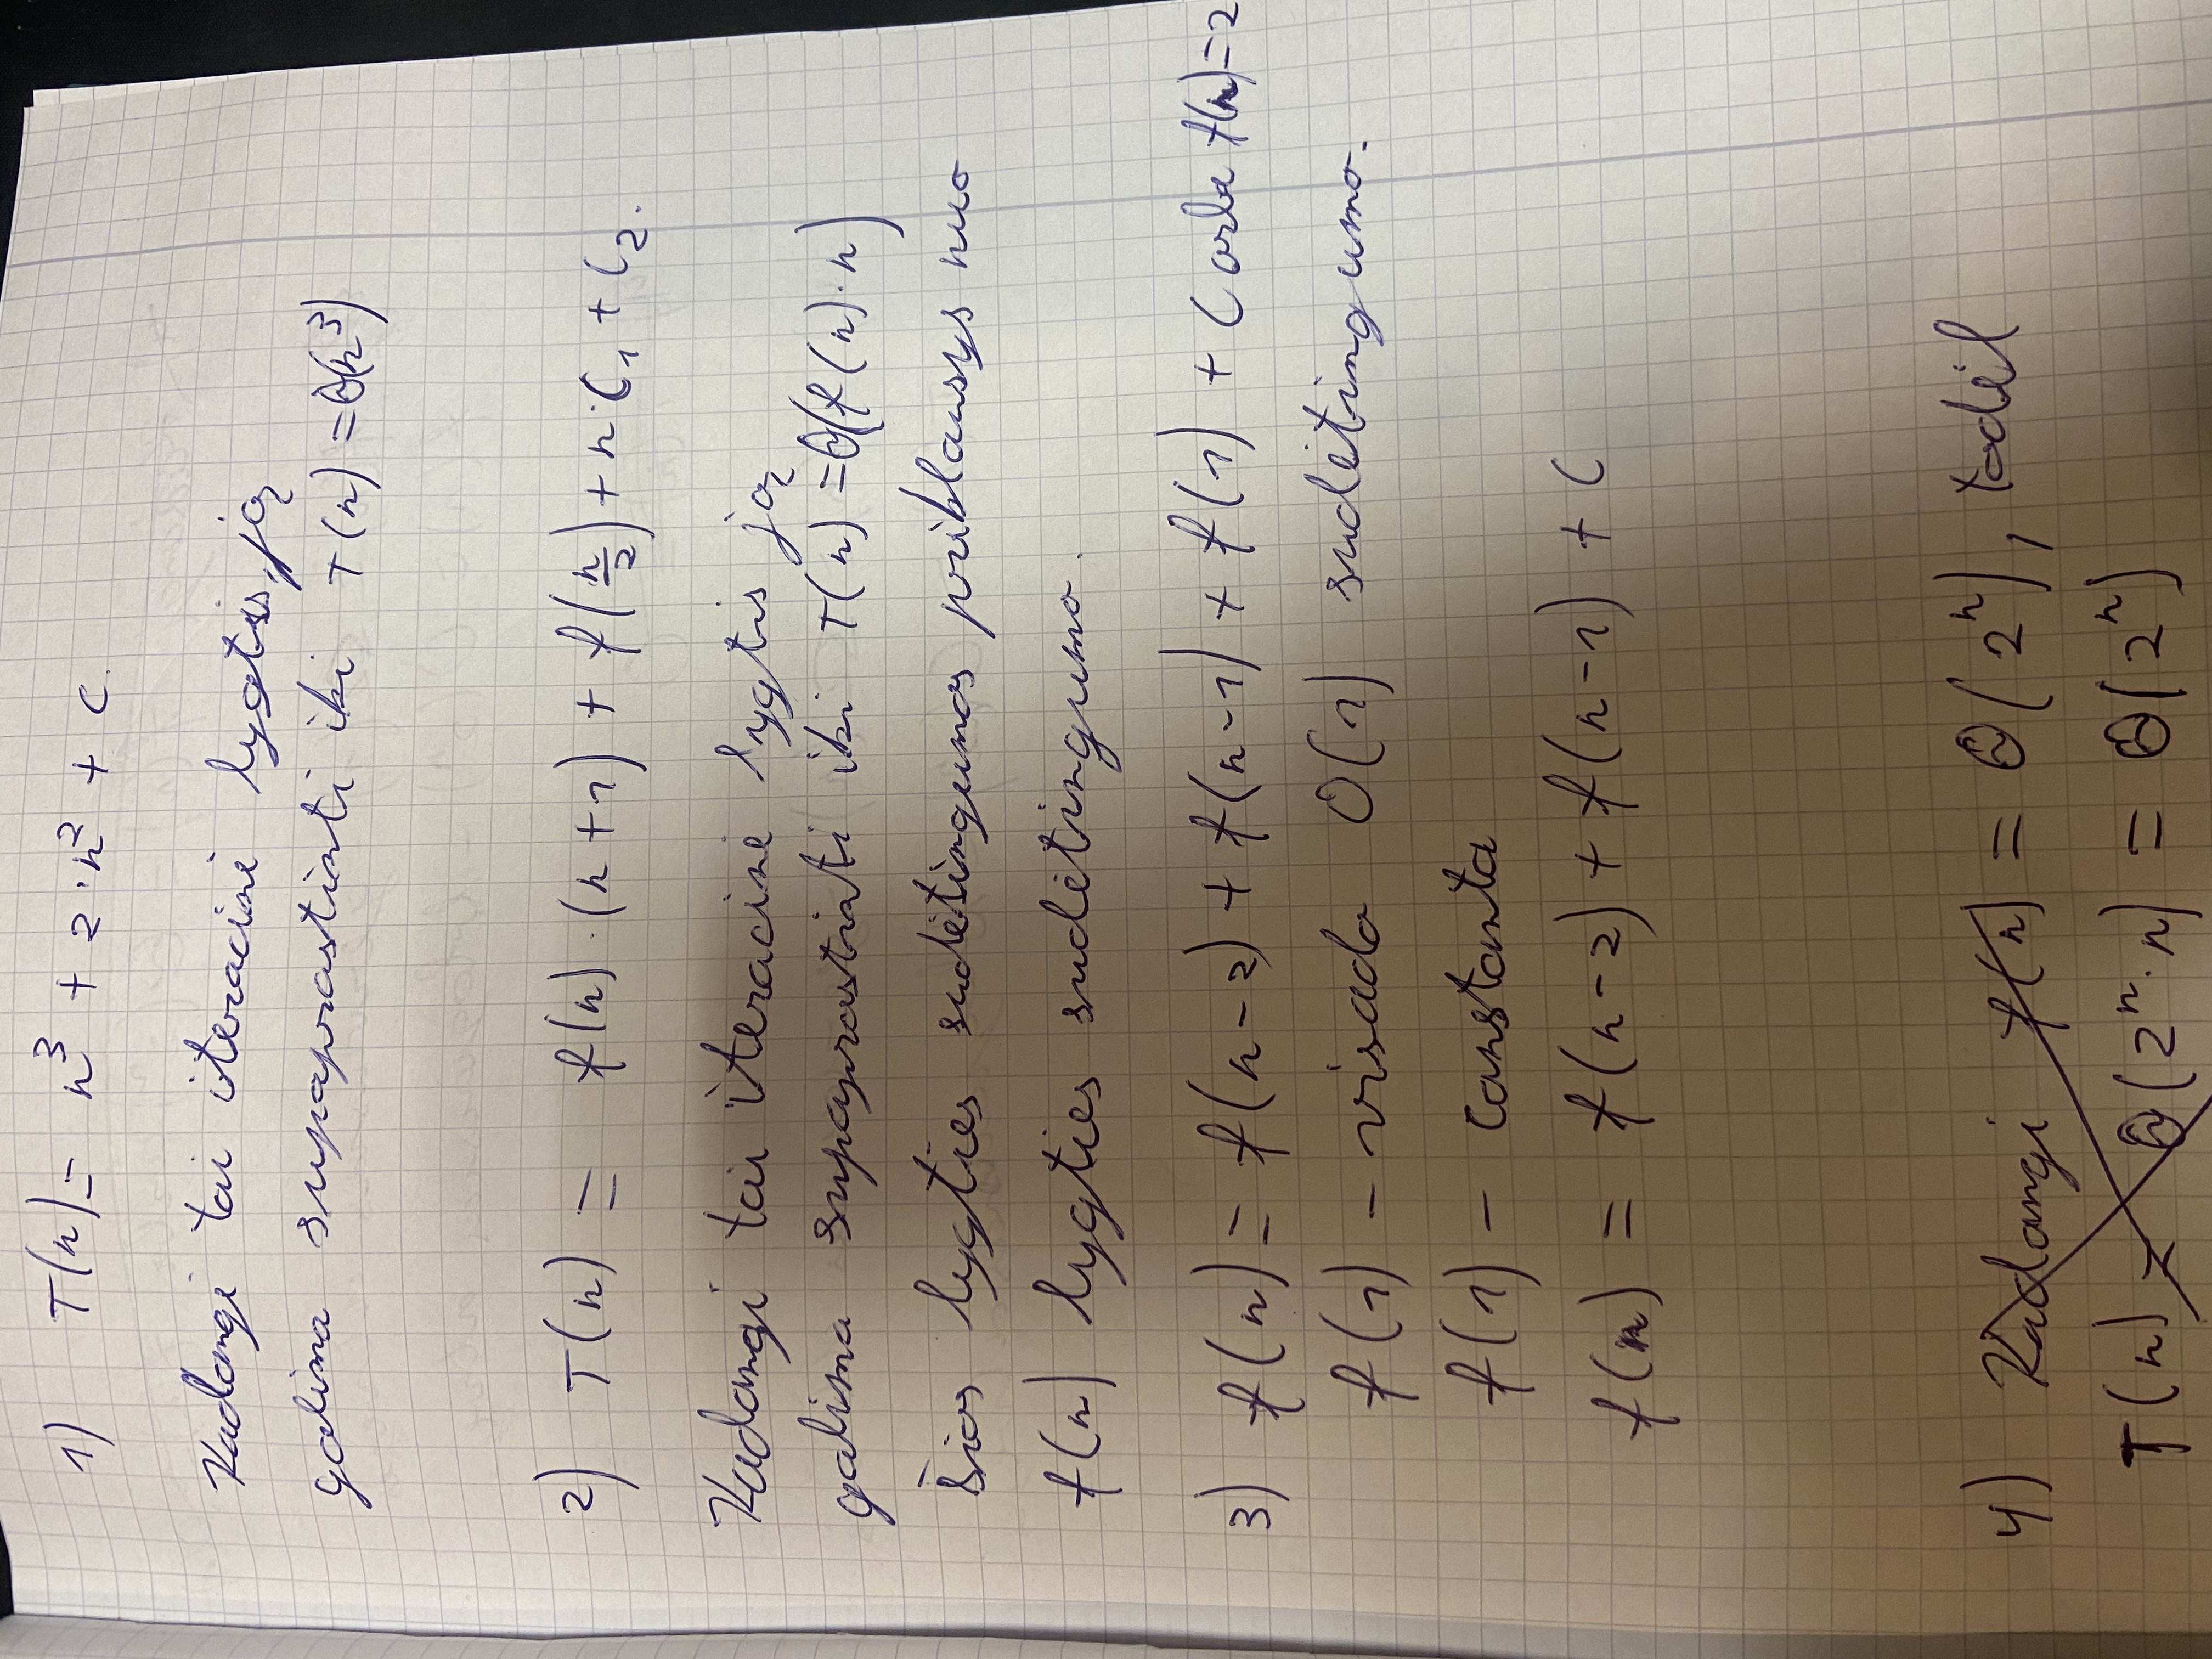 1) T(n) = n³ + 2·n² + c.
Kadangi tai iteracinė lygtis, ją
galima suprastinti iki T(n) = Θ(n³)
2) T(n) = f(n)·(n+1) + f(n/2) + n·C₁ + C₂.
Kadangi tai iteracinė lygtis ją
galima suprastinti iki T(n) = Θ(f(n)·n)
Šios lygties sudėtingumas priklausys nuo
f(n) lygties sudėtingumo.
3) f(n) = f(n-2) + f(n-1) + f(1) + C arba f(n)=2
f(1) - visada O(1) sudėtingumo.
f(1) - constanta
f(n) = f(n-2) + f(n-1) + C
4) Kadangi f(n) = Θ(2ⁿ), todėl
T(n) = Θ(2ⁿ·n) = Θ(2ⁿ)